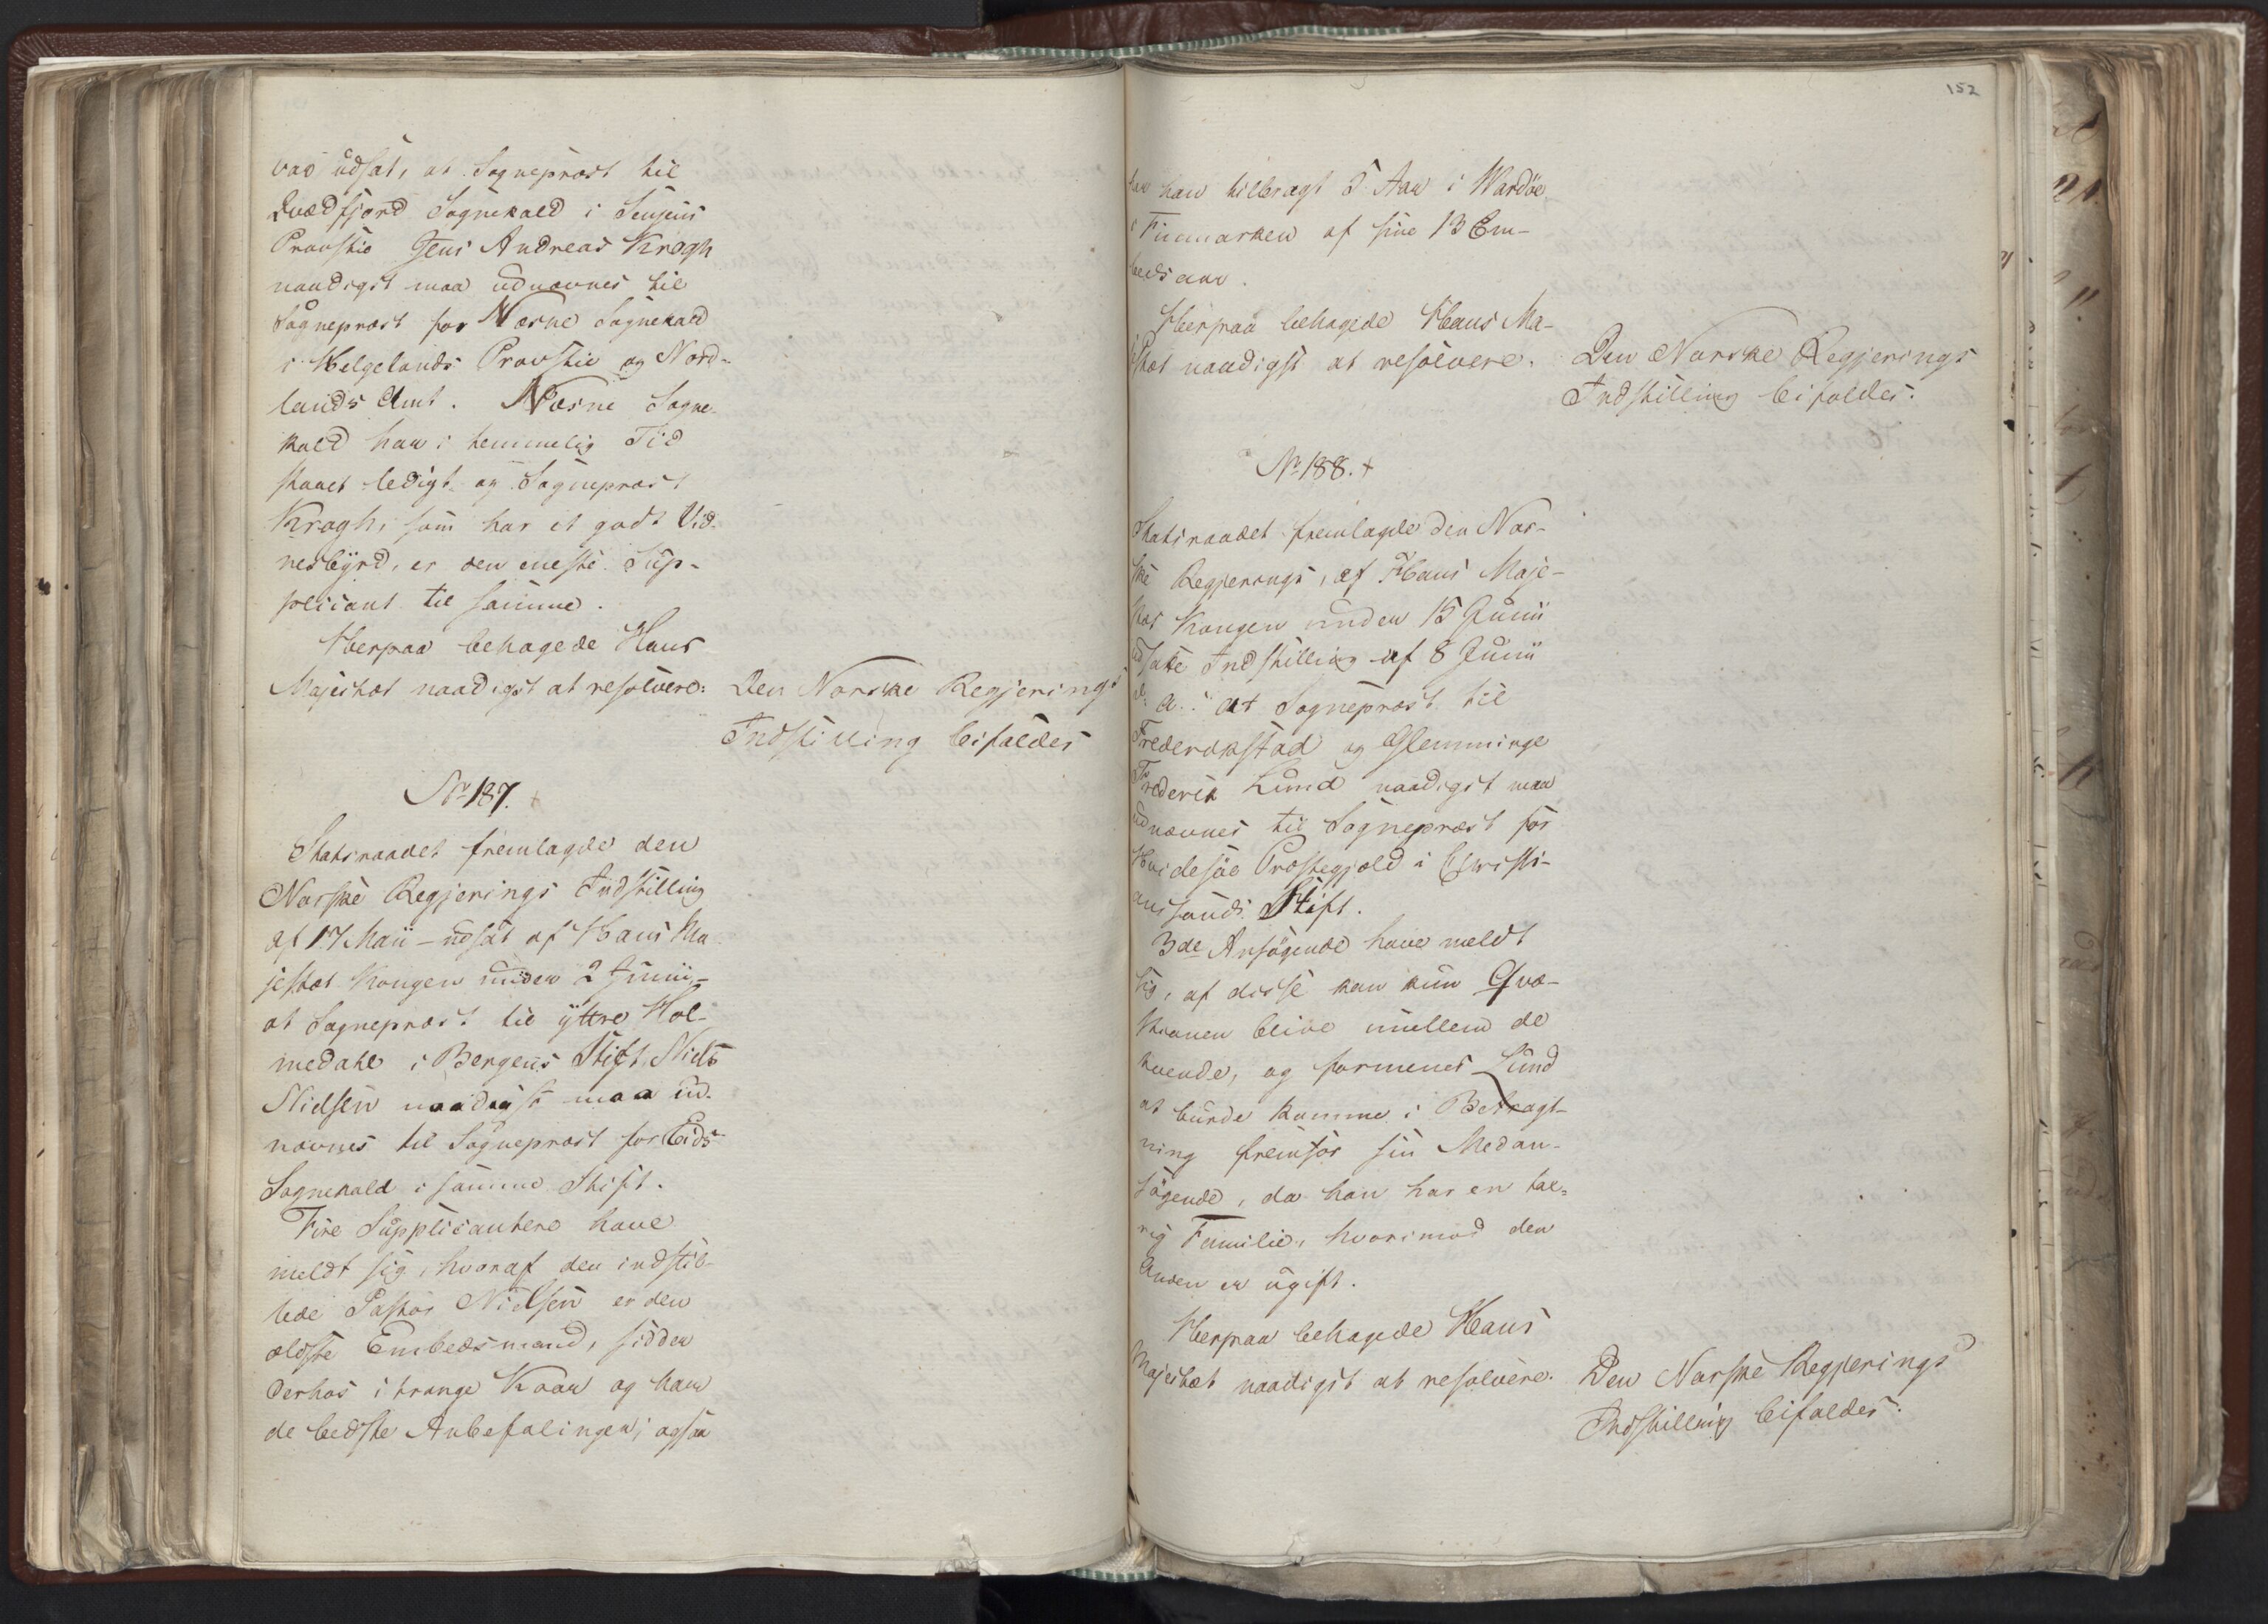 var udsat, at Sognepræst til
Qvædfjord Sognekald i Senjens
Provstie Jens Andreas Krogh
naadigst maa udnævnes til
Sognepræst for Næsne Sognekald
i Helgelands Provstie og Nord-
lands Amt. Næsne Sogne-
kald har i temmelig Tid
staaet ledigt og Sognepræst
Krogh, som har et godt Vid-
nesbyrd, er den eneste Sup-
plicant til samme.
Herpaa behagede Hans
Majestæt naadigst at resolvere:
Den Norske Regjerings
Indstilling bifaldes
No 187.
Statsraadet fremlagde den
Norske Regjerings Indstilling
af 17 Maii – udsat af Hans Ma
jestæt Kongen under 2 Junii –
at Sognepræst til yttre Hol-
medahl i Bergens Stift, Niels
Nielsen naadigst maa ud-
nævnes til Sognepræst for Eids
Sognekald i samme Stift.
Fire Supplicantere have
meldt sig, hvoraf den indstil-
lede Pastor Nielsen er den
ældste Embedsmand, sidder
derhos i trange Kaar og har
de bedste Anbefalinger; ogsaa
152
har han tilbragt 5 Aar i Wardöe
i Finmarken af sine 13 Em-
bedsaar.
Herpaa behagede Hans Ma-
jestæt naadigst at resolvere.
Den Norske Regjerings
Indstilling bifaldes.
No 188. +
Statsraadet fremlagde den Nor-
ske Regjerings, af Hans Maje-
stæt Kongen under 15 Junii
udsatte Indstilling af 8 Junii
d. a. "at Sognepræst til
Frederikstad og Glemminge
Frederik Lund naadigst maa
udnævnes til Sognepræst for
Hvidesöe Præstegjæld i Christi-
anssands Stift.
3de Ansögende have meldt
sig, af disse kan kun Qvæ-
stionen blive imellem de
tvende, og formenes Lund
at burde komme i Betragt-
ning fremfor sin Medan-
sögende, da han har en tal-
rig Familie, hvorimod den
Anden er ugift.
Herpaa behagede Hans
Majestæt naadigst at resolvere.
Den Norske Regjerings
Indstilling bifaldes.